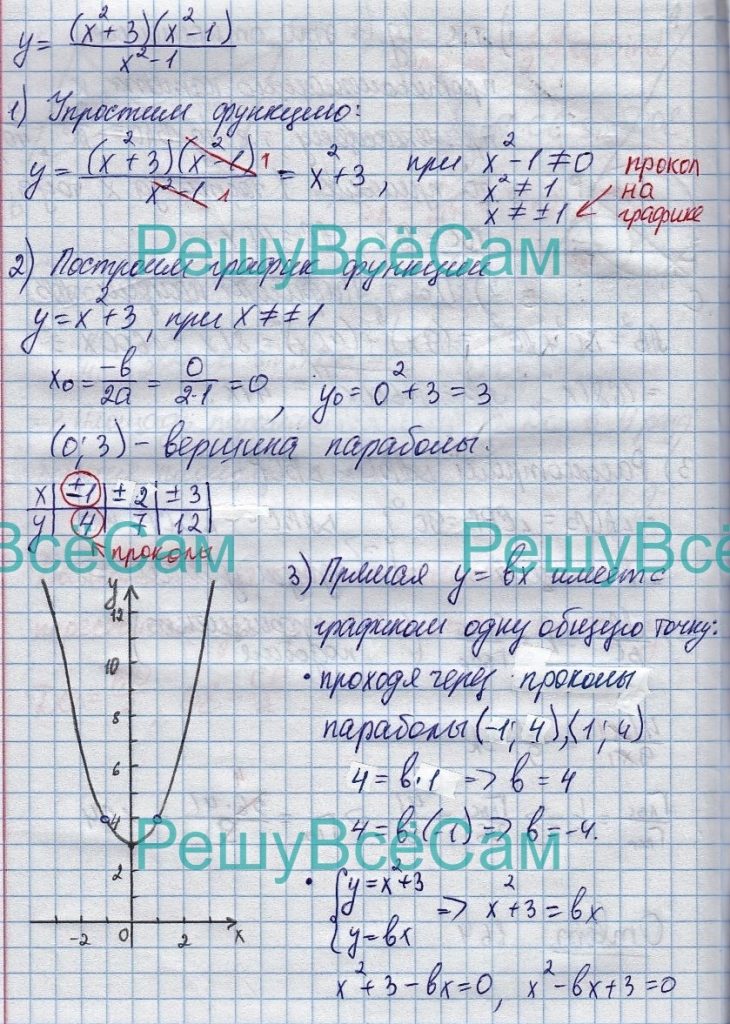 y = (x²+3)(x²-1) / x²-1
1) Упростим функцию:
y = (x²+3)(x²-1) 1 / x²-1 1 = x²+3, при x²-1≠0 прокол
x²≠1 на
x≠±1 графике
РешуВсёСам
2) Построим график функции
y=x²+3, при x≠±1
x₀ = -в/2а = 0/2·1 = 0, y₀=0²+3=3
(0;3) - вершина параболы.
x | ±1 | ±2 | ±3 |
y | 4 | 7 | 12 |
проколы
ВсёСам РешуВсё
3) Прямая y=вx имеет с
графиком одну общую точку:
• проходя через проколы
параболы (-1; 4), (1; 4)
4=в·1 => в=4
4=в·(-1) => в=-4.
РешуВсёСам
• { y=x²+3
y=вx => x²+3=вx
x²+3-вx=0, x²-вx+3=0
y
12
10
8
6
4
2
-2 0 2 x